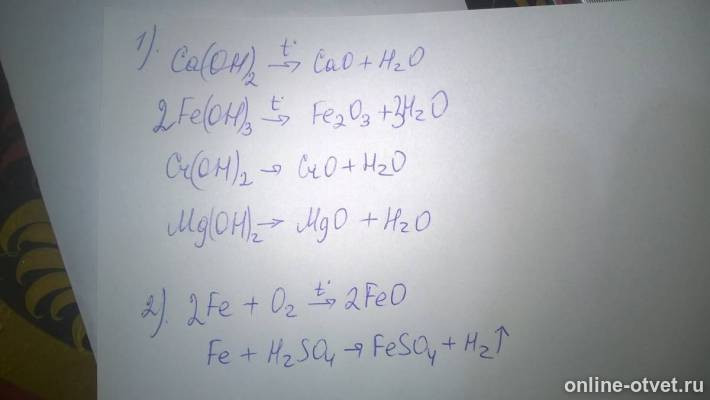 1). Ca(OH)₂ →t° CaO + H₂O
2Fe(OH)₃ →t° Fe₂O₃ + 3H₂O
Cr(OH)₂ → CrO + H₂O
Mg(OH)₂ → MgO + H₂O
2). 2Fe + O₂ →t° 2FeO
Fe + H₂SO₄ → FeSO₄ + H₂↑
online-otvet.ru